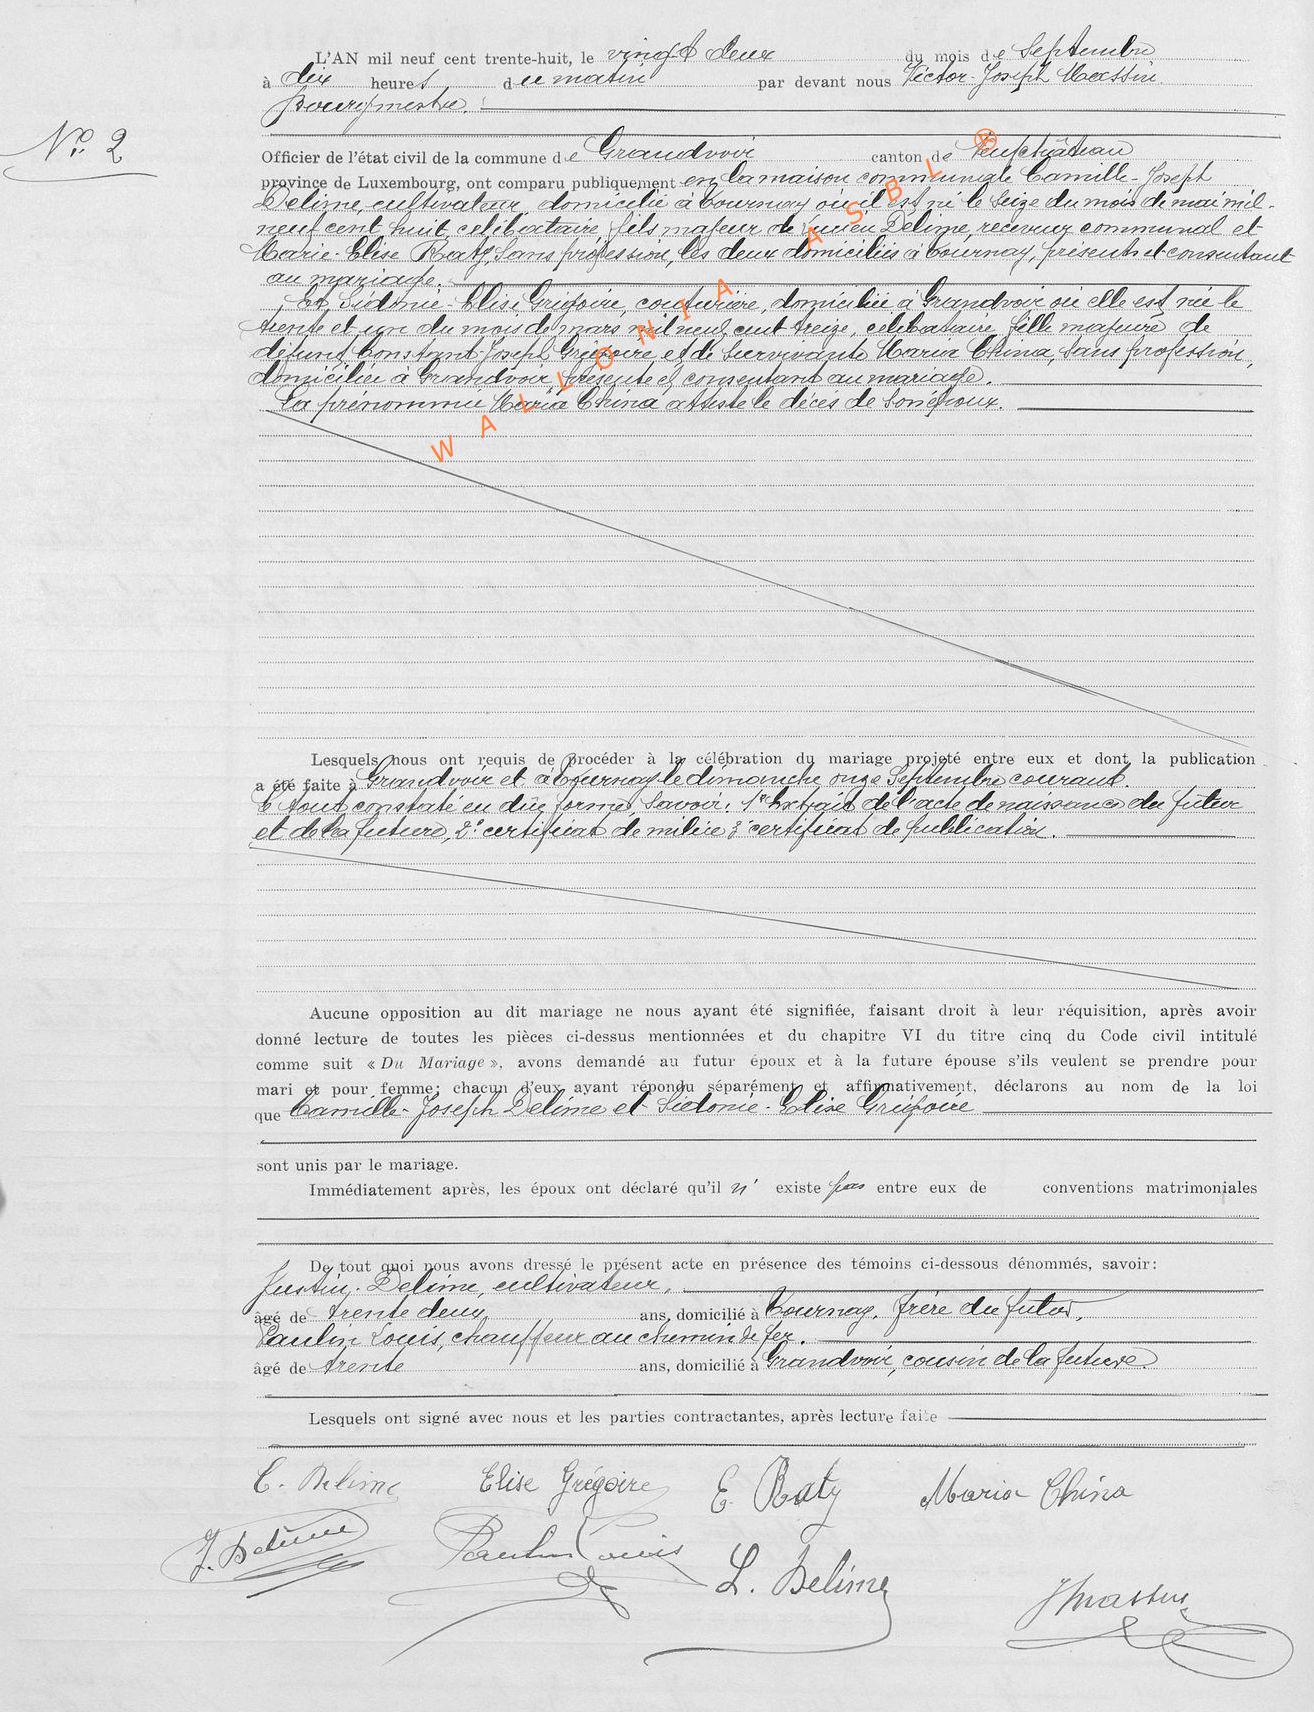 L'AN mil neuf cent trente-huit, le vingt deux du mois de Septembre
à dix heures du matin par devant nous Victor-Joseph Massin
bourgmestre.
N° 2
Officier de l'état civil de la commune de Grandvoir canton de Neufchâteau
province de Luxembourg, ont comparu publiquement en la maison communale Camille-Joseph
Delime, cultivateur, domicilié à Tournay où il est né le seize du mois de mai mil-
neuf cent huit, célibataire, fils majeur de Lucien Delime, receveur communal et
Marie-Elise Raty, sans profession, les deux domiciliés à Tournay, présents et consentant
au mariage.
Et Sidonie-Elise Grégoire, couturière, domiciliée à Grandvoir où elle est née le
trente et un du mois de mars mil neuf cent treize, célibataire, fille majeure de
défunt Constant Joseph Grégoire et de survivante Maria China sans profession,
domiciliée à Grandvoir, présente et consentant au mariage.
La prénommée Maria China atteste le décès de son époux.
WALLONIA ASBL ®
Lesquels nous ont requis de procéder à la célébration du mariage projeté entre eux et dont la publication
a été faite à Grandvoir et à Tournay le dimanche onze Septembre courant.
Le tout constaté en due forme, savoir: 1° Extrait de l'acte de naissance du futur
et de la future, 2° certificat de milice 3° certificat de publication.
Aucune opposition au dit mariage ne nous ayant été signifiée, faisant droit à leur réquisition, après avoir
donné lecture de toutes les pièces ci-dessus mentionnées et du chapitre VI du titre cinq du Code civil intitulé
comme suit « Du Mariage », avons demandé au futur époux et à la future épouse s'ils veulent se prendre pour
mari et pour femme; chacun d'eux ayant répondu séparément et affirmativement, déclarons au nom de la loi
que Camille-Joseph Delime et Sidonie-Elise Grégoire
sont unis par le mariage.
Immédiatement après, les époux ont déclaré qu'il n' existe pas entre eux de conventions matrimoniales
De tout quoi nous avons dressé le présent acte en présence des témoins ci-dessous dénommés, savoir:
Justin Delime, cultivateur,
âgé de trente deux ans, domicilié à Tournay, frère du futur,
Paulin Louis, chauffeur au chemin de fer.
âgé de trente ans, domicilié à Grandvoir, cousin de la future.
Lesquels ont signé avec nous et les parties contractantes, après lecture faite
C. Delime Elise Grégoire E. Raty Maria China
J. Delime Paulin Louis L. Delime JMassin